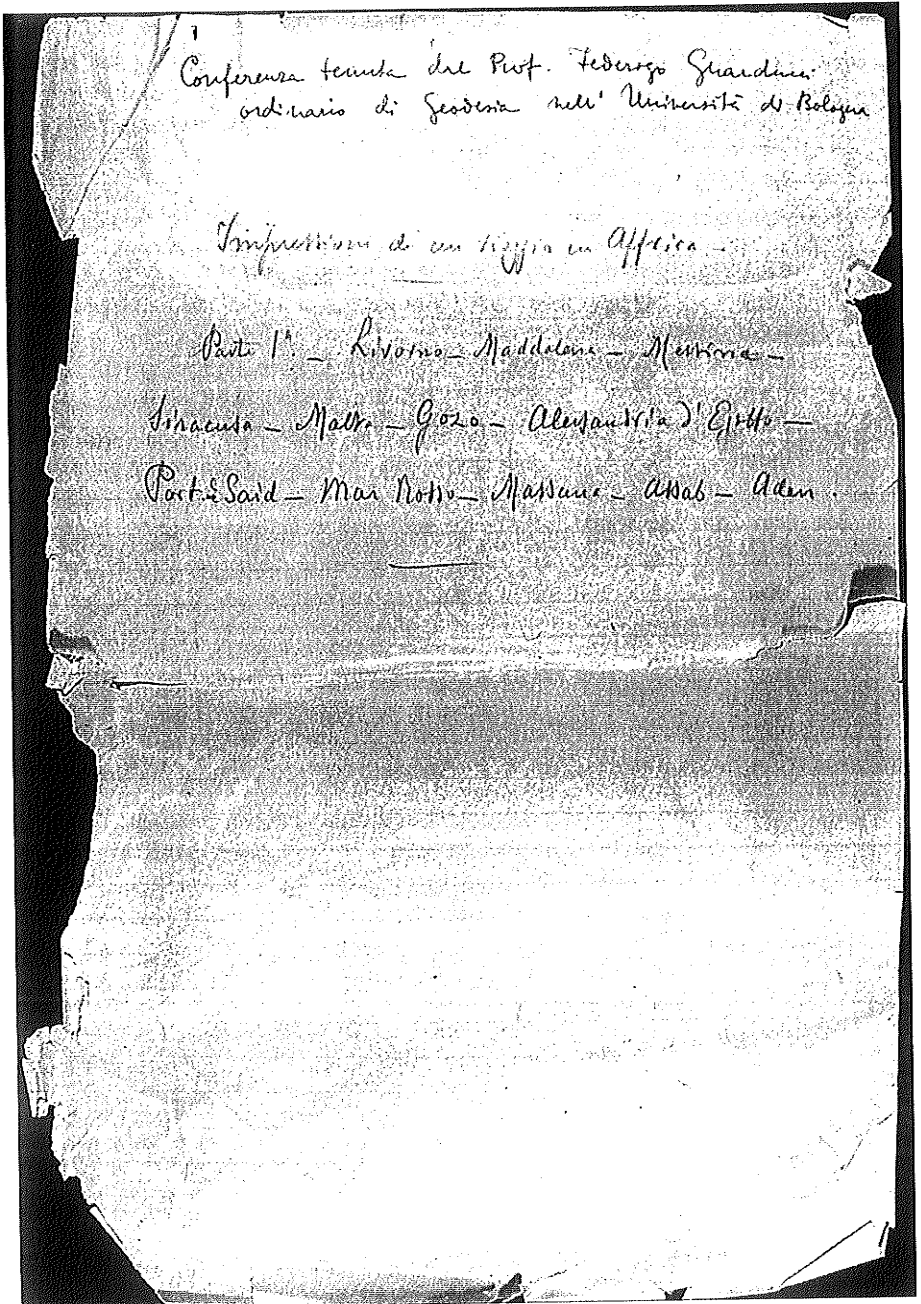 Conferenza tenuta dal Prof. Federigo Guarducci
ordinario di Geodesia nell' Università di Bologna
Impressioni di un viaggio in Affrica –
Parte 1ª. – Livorno – Maddalena – Messina –
Siracusa – Malta – Gozo – Alessandria d'Egitto –
Port-Said – Mar Rosso – Massaua – Assab – Aden.